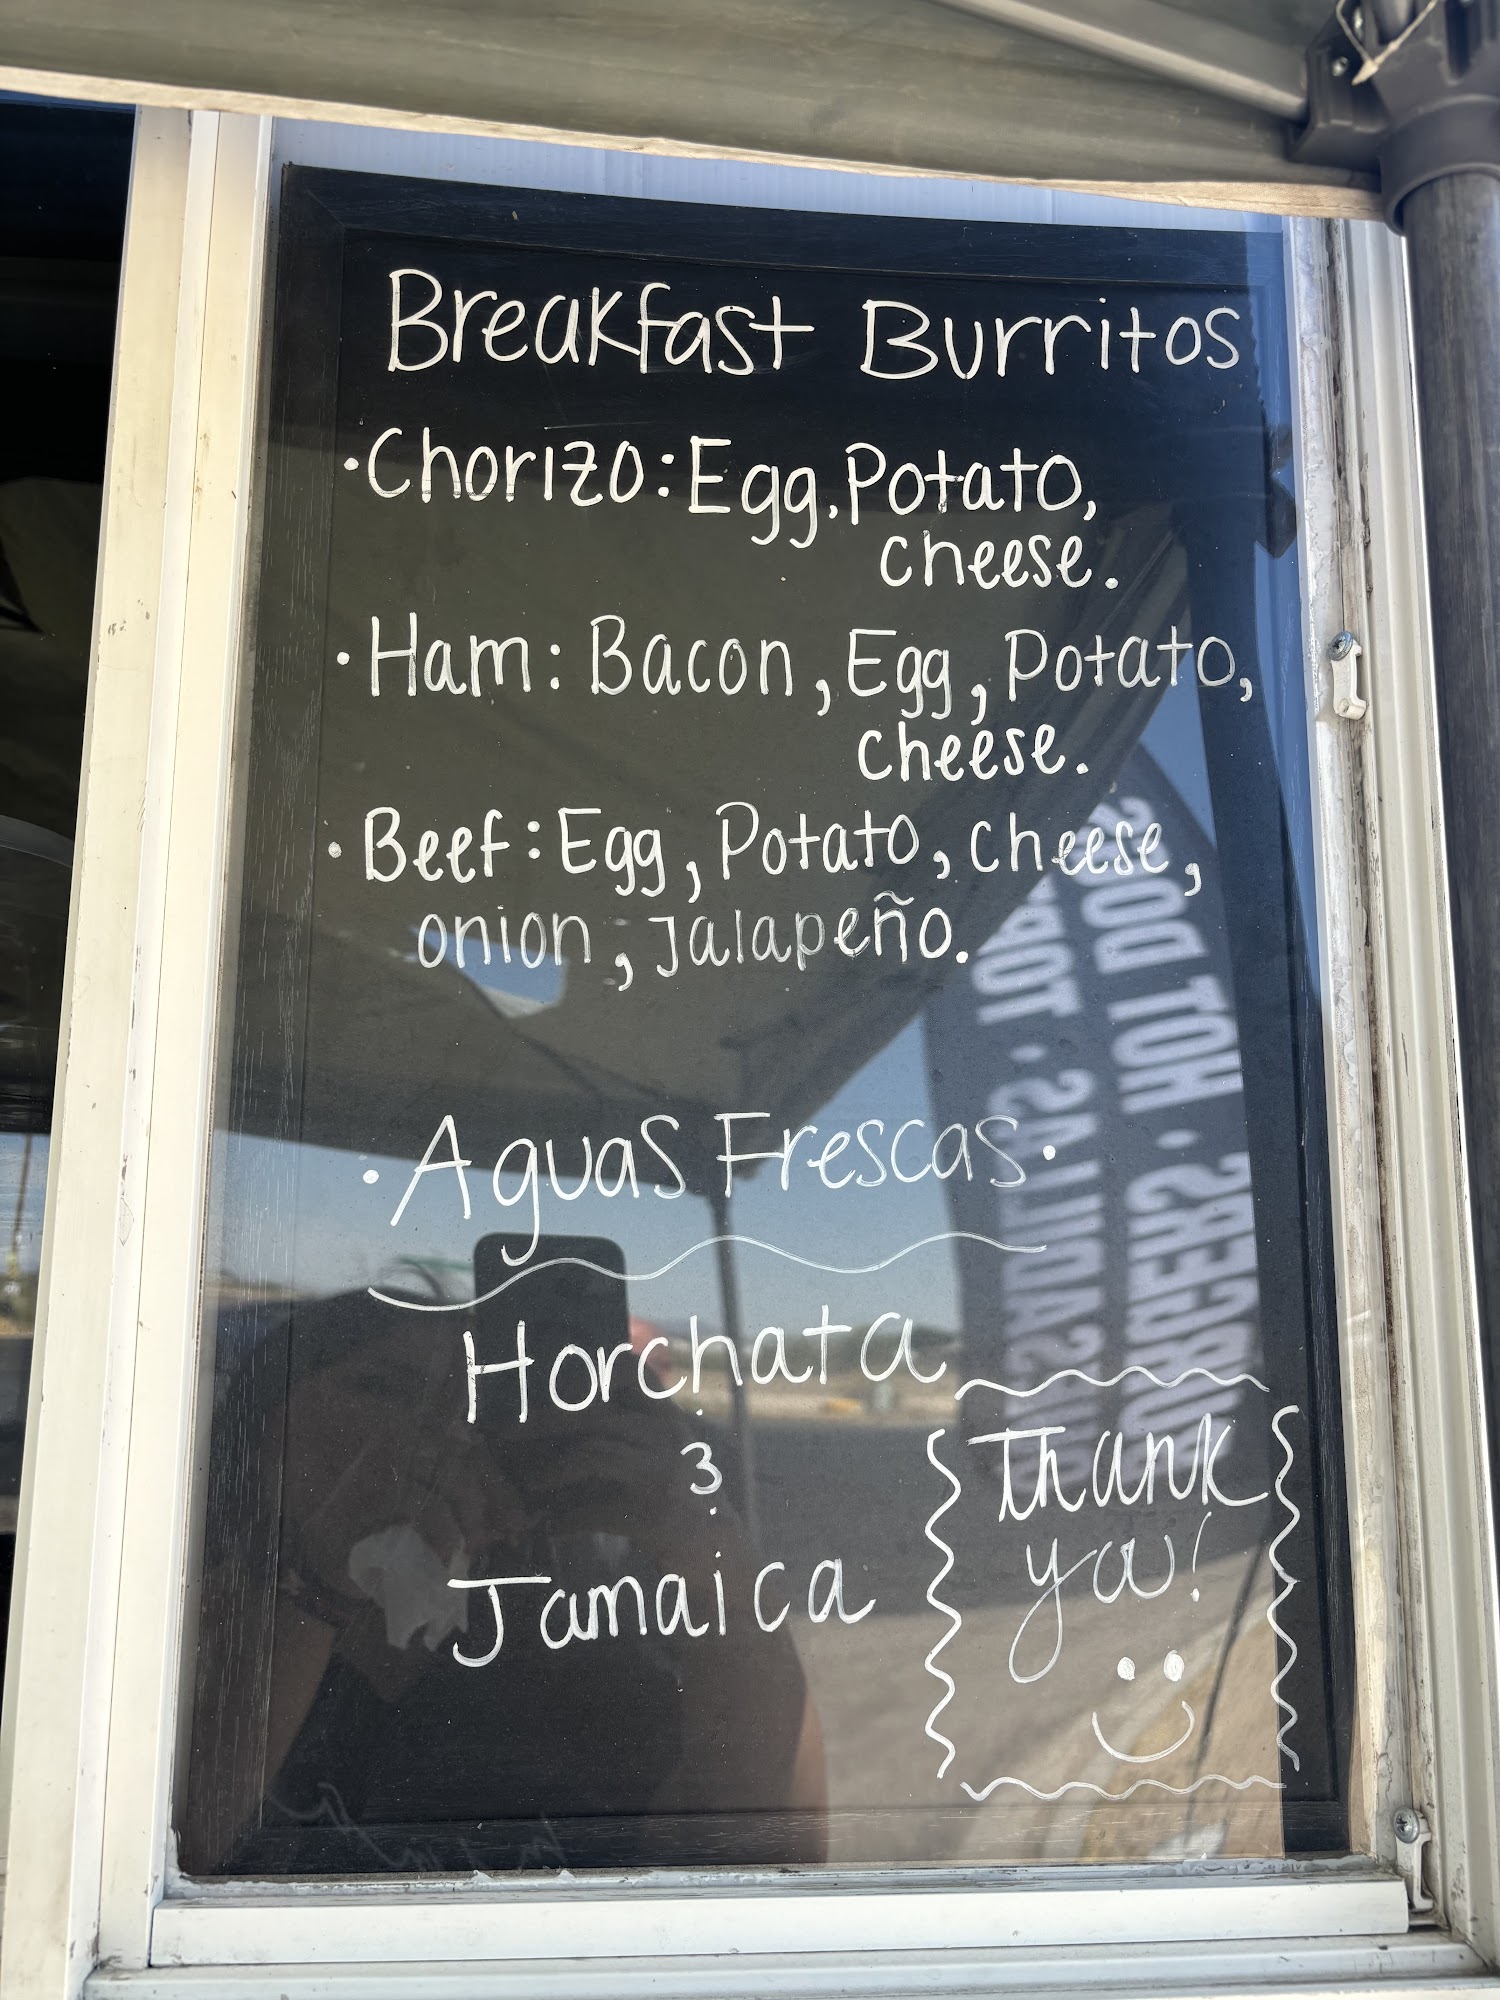 Breakfast Burritos
·Chorizo: Egg, Potato,
cheese.
·Ham: Bacon, Egg, Potato,
cheese.
·Beef: Egg, Potato, cheese,
onion, Jalapeño.
·Aguas Frescas·
Horchata
&
Jamaica
Thank
you!
HOT DOGS
BURGERS · HOT DOGS